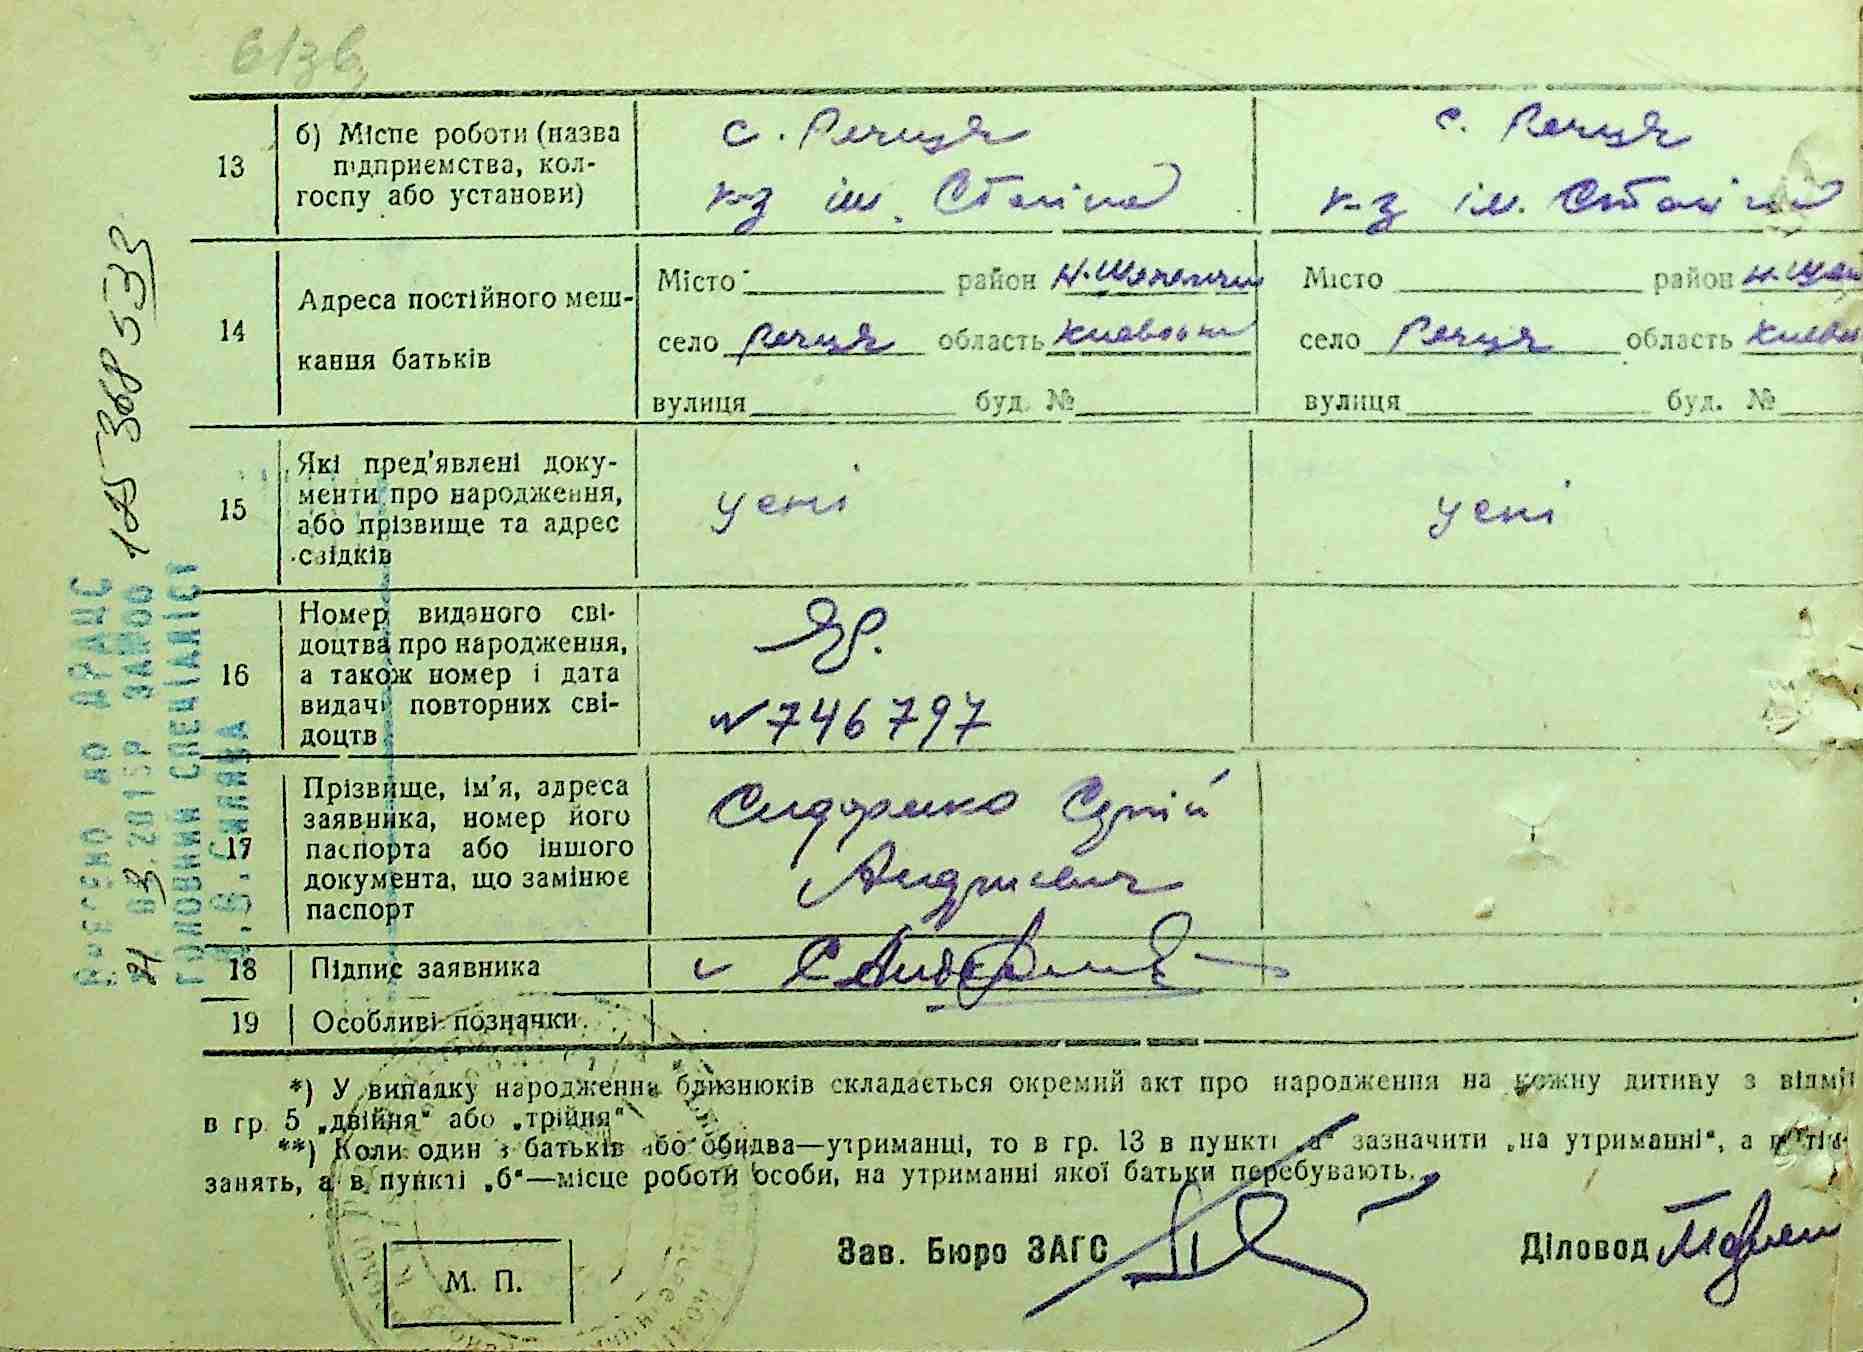 13
б) Місце роботи (назва
підприємства, кол-
госпу або установи)
с. Речиця
к-з ім. Сталіна
с. Речиця
к-з ім. Сталіна
14
Адреса постійного меш-
кання батьків
Місто район Н.Шепелич
село Речиця область Киевськ
вулиця буд. №
Місто район Н.Шеп
село Речиця область Киевсь
вулиця буд. №
15
Які пред'явлені доку-
менти про народження,
або прізвище та адрес
свідків
усні
усні
16
Номер виданого сві-
доцтва про народження,
а також номер і дата
видачі повторних сві-
доцтв
ЯР.
№ 746797
17
Прізвище, ім'я, адреса
заявника, номер його
паспорта або іншого
документа, що замінює
паспорт
Сидоренко Сергій
Андриевич
18
Підпис заявника
19
Особливі позначки
*) У випадку народження близнюків складається окремий акт про народження на кожну дитину з відміт
в гр. 5 „двійня“ або „трійня“
**) Коли один з батьків або обидва—утриманці, то в гр. 13 в пункті „а“ зазначити „на утриманні“, а
занять, а в пункті „б“—місце роботи особи, на утриманні якої батьки перебувають.
М. П.
Зав. Бюро ЗАГС
Діловод
185 368 533
Внесено до ДРАЦС
21 03.2015р. ЗАМ00
ГОЛОВНИЙ СПЕЦІАЛІСТ